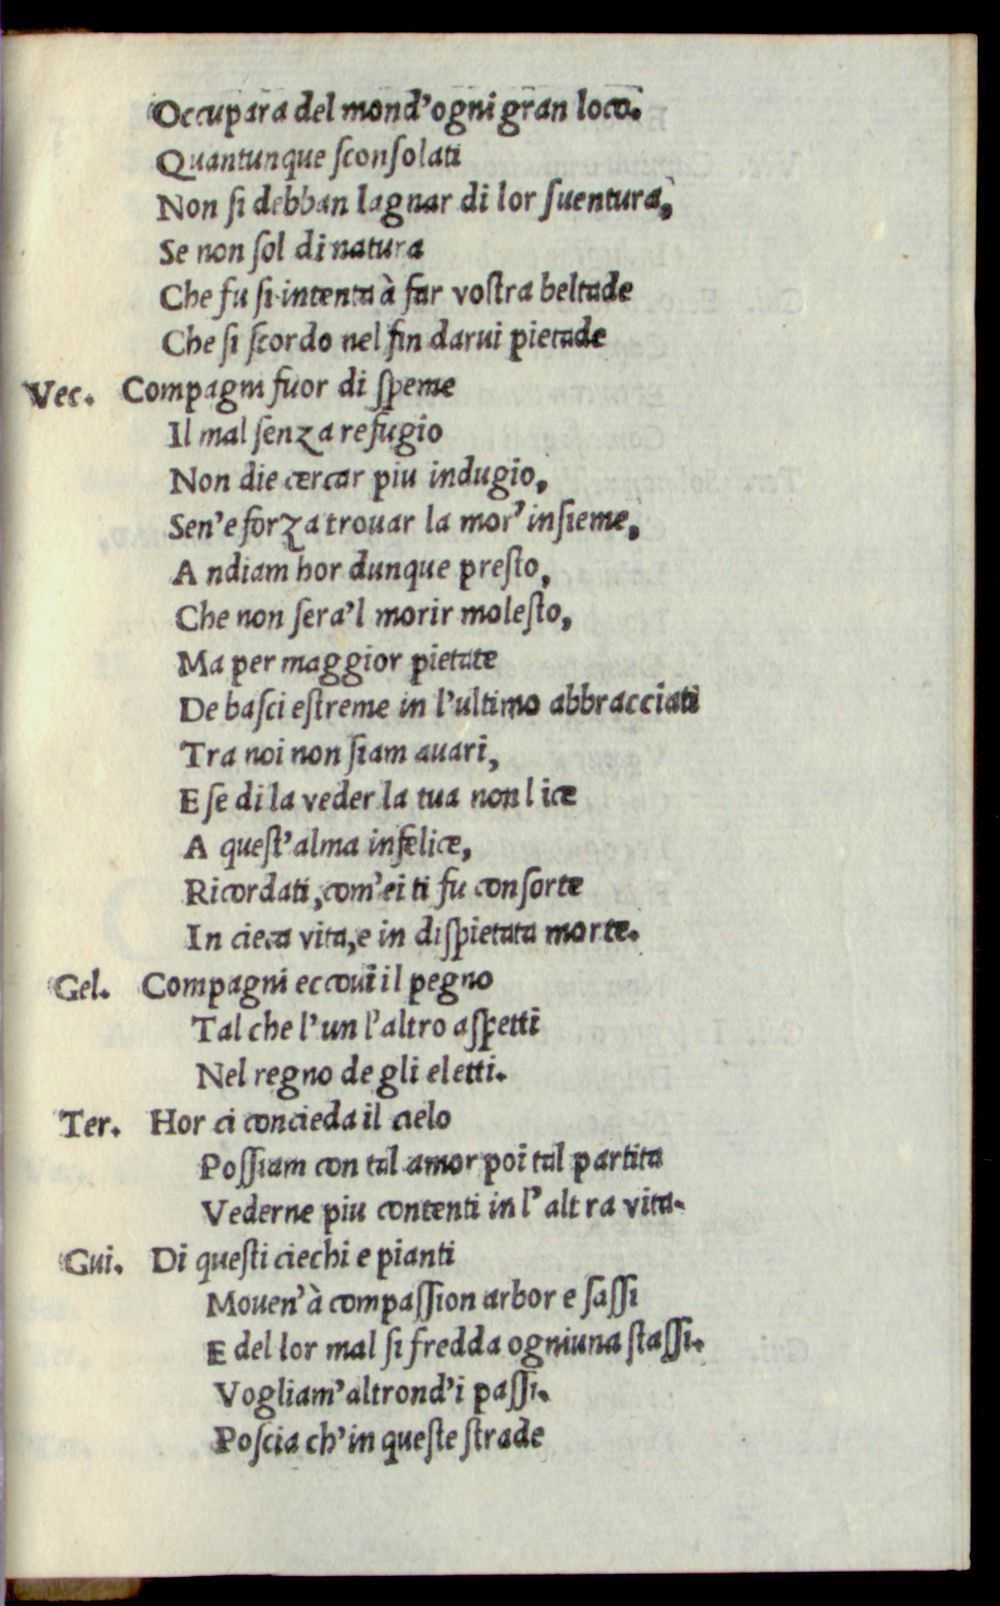 Occupara del mond'ogni gran loco.
Quantunque ſconſolati
Non ſi debban lagnar di lor ſuentura,
Se non ſol di natura
Che fu ſi intenta à far voſtra beltade
Che ſi ſcordo nel fin darui pietade
Vec. Compagni fuor di ſpeme
Il mal ſenza refugio
Non die cercar piu indugio,
Sen'e forza trouar la mor' inſieme,
Andiam hor dunque preſto,
Che non ſera'l morir moleſto,
Ma per maggior pietate
De baſci eſtreme in l'ultimo abbracciati
Tra noi non ſiam auari,
E ſe di la veder la tua non lice
A queſt'alma infelice,
Ricordati, com'ei ti fu conſorte
In cieca vita, e in diſpietata morte.
Gel. Compagni eccoui il pegno
Tal che l'un l'altro aſpetti
Nel regno de gli eletti.
Ter. Hor ci concieda il cielo
Poſſiam con tal amor poi tal partita
Vederne piu contenti in l'altra vita.
Gui. Di queſti ciechi e pianti
Mouen'à compaſſion arbor e ſaſſi
E del lor mal ſi fredda ogniuna ſtaſſi.
Vogliam'altrond'i paſſi.
Poſcia ch'in queſte ſtrade